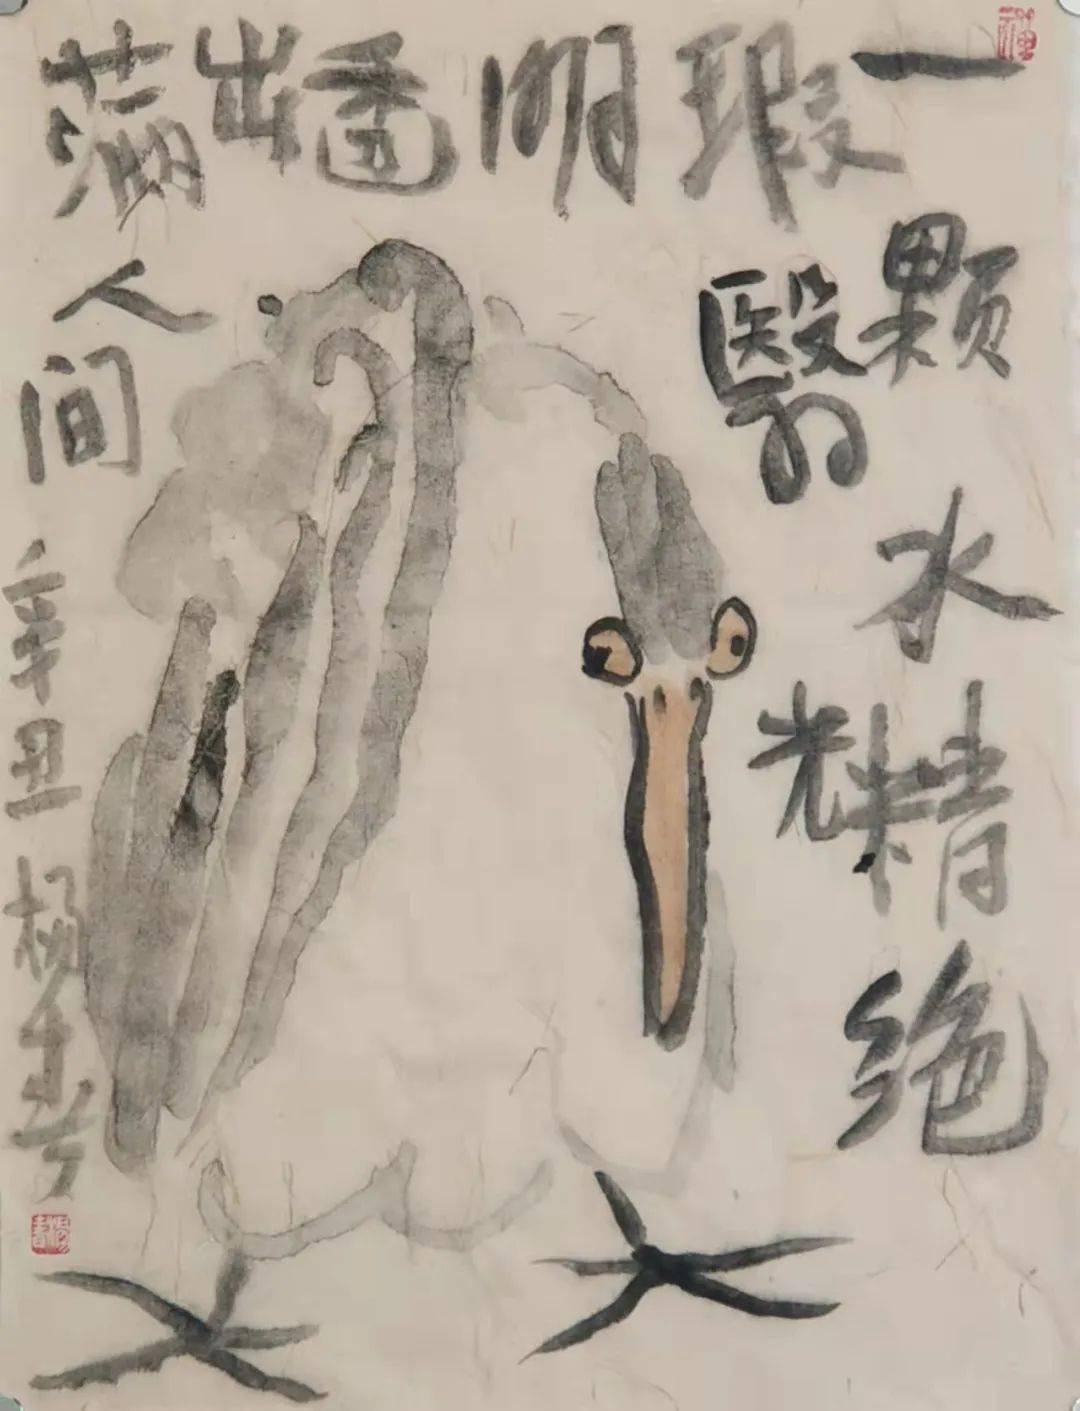 一颗水精绝
瑕翳光
明
透
出
满人间
辛丑 杨